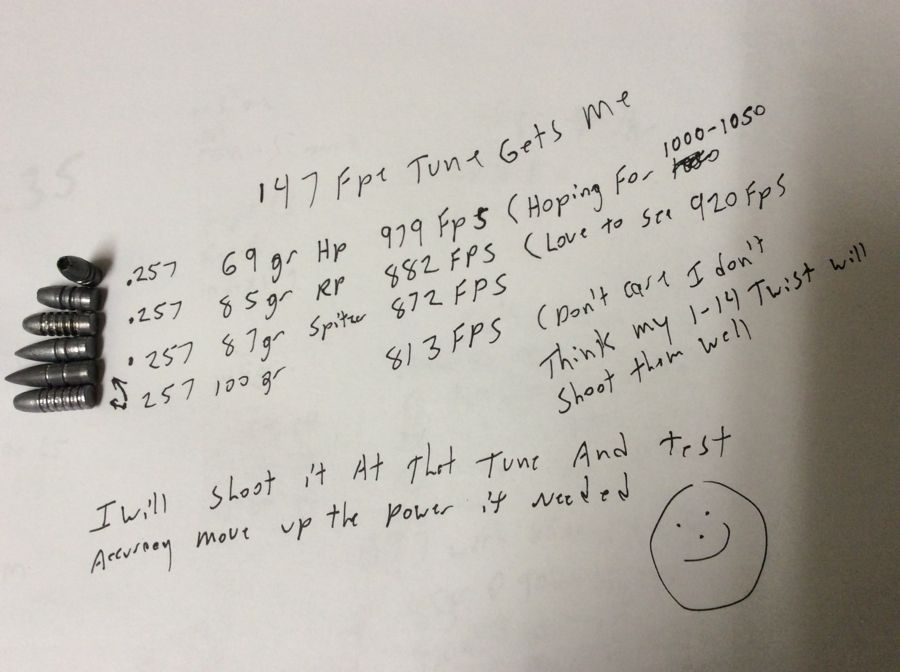 147 Fpe Tune Gets Me
.257 69 gr Hp 979 Fps (Hoping For 1000-1050
.257 85gr RP 882 FPS (Love to see 920 Fps
.257 87gr Spitzer 872 FPS
257 100 gr 813 FPS (Don't care I don't
Think my 1-14 Twist will
Shoot them well
I will shoot it At that Tune And test
Accuracy move up the power if needed